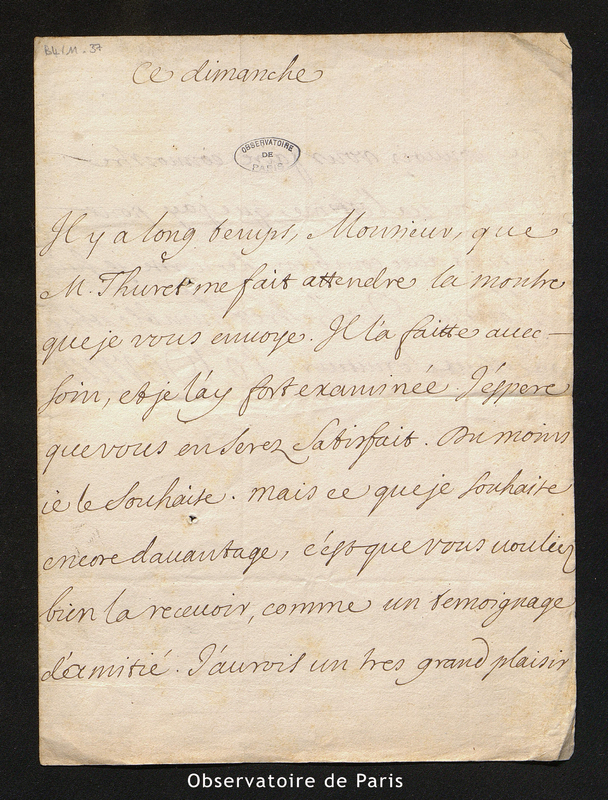 B4/11-37
Ce dimanche
OBSERVATOIRE
DE
PARIS
Il y a long temps, Monsieur, que
M. Thuret me fait attendre la montre
que je vous envoye. Il l'a faitte avec
soin, et je l'ay fort examinée. J'espere
que vous en serez satisfait. Du moins
ie le souhaite. mais ce que je souhaite
encore davantage, c'est que vous vouliez
bien la recevoir, comme un temoignage
d'amitié. J'aurois un tres grand plaisir
Observatoire de Paris